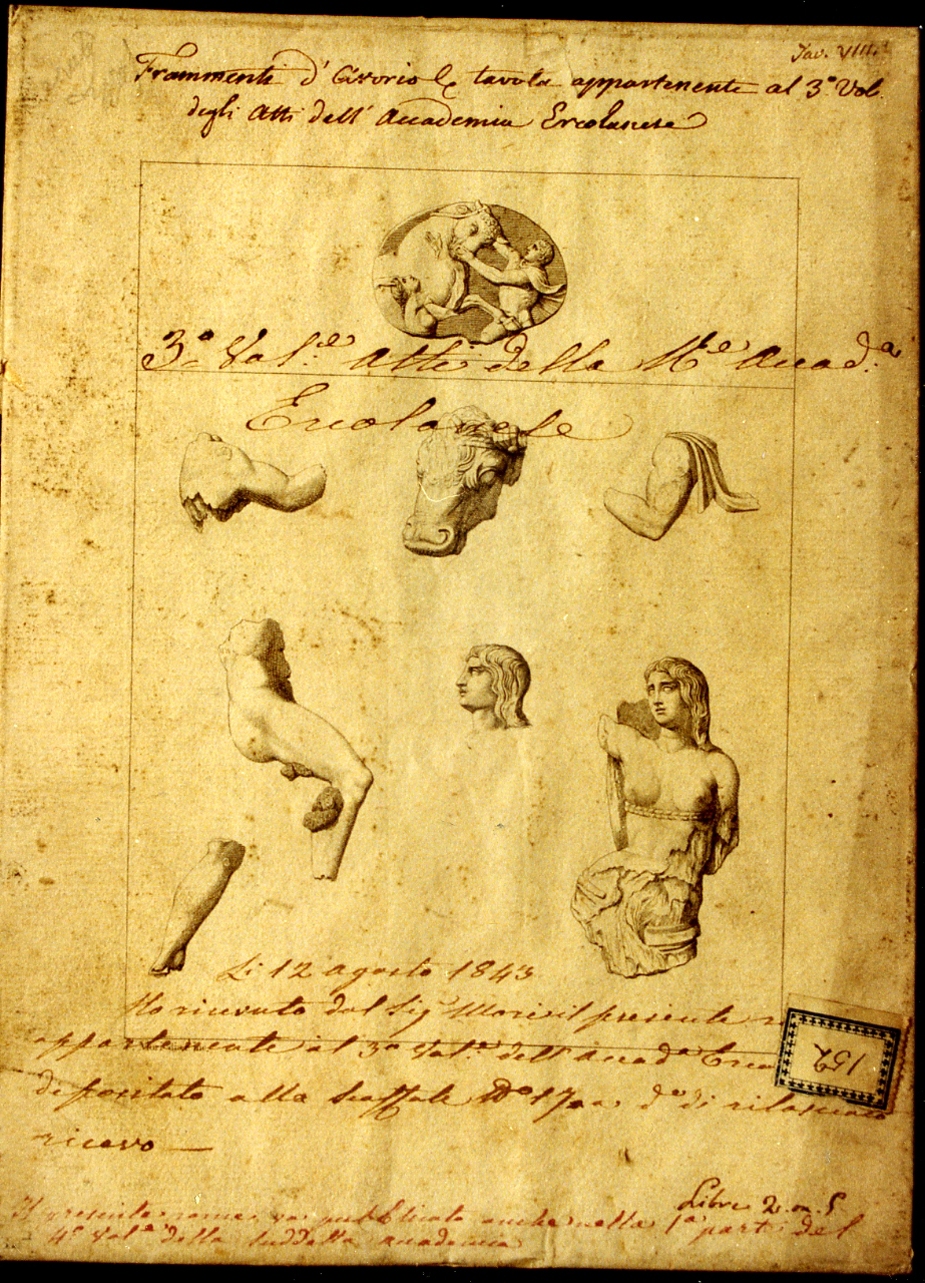 Tav. VIIII.
Frammenti d' Avorio tavola appartenente al 3.° Vol.
degli Atti dell' Accademia Ercolanese
3.° Vol.e Atti della R.e Accad.a
Ercolanese
Li 12 agosto 1843
Ho ricevuto dal Sig.r Mori il presente
appartenente al 3.° Vol.e dell' Accad.a
depositato alla Scaffale N.° 17 di rilasciato
ricevo
152
Libre 2. on. 5
Il presente rame va pubblicato anche nella 1.a parte del
4.° Vol.e della suddetta accademia